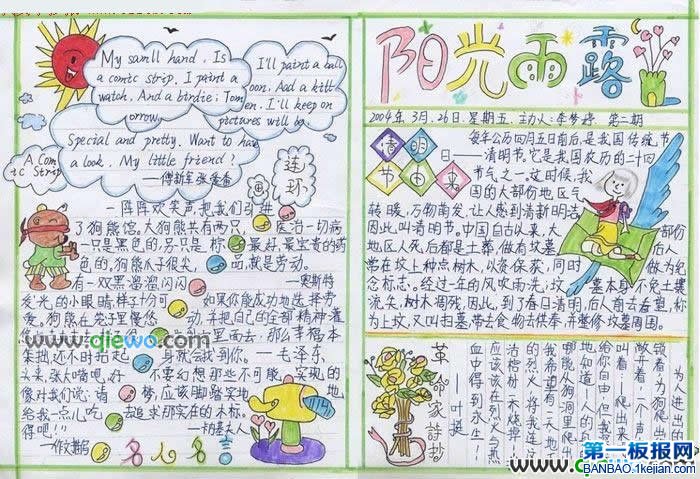 My samll hand. Is
a comic strip. I paint a
watch. And a birdie; Tom
orrow
I'll paint a ball
oon. And a kitt
en. I'll keep on
pictures will be
Special and pretty. Want to have
a look. My little friend?
A Com
ic Strip
连
环
画
一阵阵欢笑声，把我们引进
了狗熊馆。大狗熊共有两只，
一只是黑色的，另一只是棕
色的。狗熊爪子很尖，
有一双黑溜溜闪闪
发光的小眼睛，样子十分可
爱。狗熊在笼子里慢悠
医治一切病
最好、最宝贵的药
品，就是劳动。
——奥斯特
如果你能成功地选择劳
动，并把自己的全部精神灌
到它里面去，那么幸福本
身就会找到你。——毛泽东
不要幻想那些不可能实现的
应该脚踏实地
去追求那实在的目标。
名人名言
阳光雨露
2004年3月26日 星期五 主办人：李梦婷 第二期
清明
节由来
每年公历四月五日前后，是我国传统节
日——清明节。它是我国农历的二十四
节气之一。这时候，我
国的大部份地区气
转暖，万物萌发，让人感到清新明洁
因此叫清明节。中国自古以来，大部份后
地区人死后都是土葬，做有坟墓，
常在坟上种点树木，以资保荻，同时做为纪
念标志。经过一年的风吹雨洗，坟墓本身不免土壤
流失，树木凋残，因此，到了春日清明，后人前去看望，称
为上坟，又叫扫墓，带去食物去供奉，并整修坟墓周围。
革命家诗抄
为人进出的
锁着，
为狗爬出
敞着，一个声
叫着，爬出来
给你自由！但我
地知道——人的
哪能从狗洞里爬出
我希望有一天地下
的烈火，将我连这
活棺材一齐烧掉，
应该在烈火与热
血中得到永生！
——叶挺
www.qiewo.com
第一板报网
BANBAO.1kejian.com